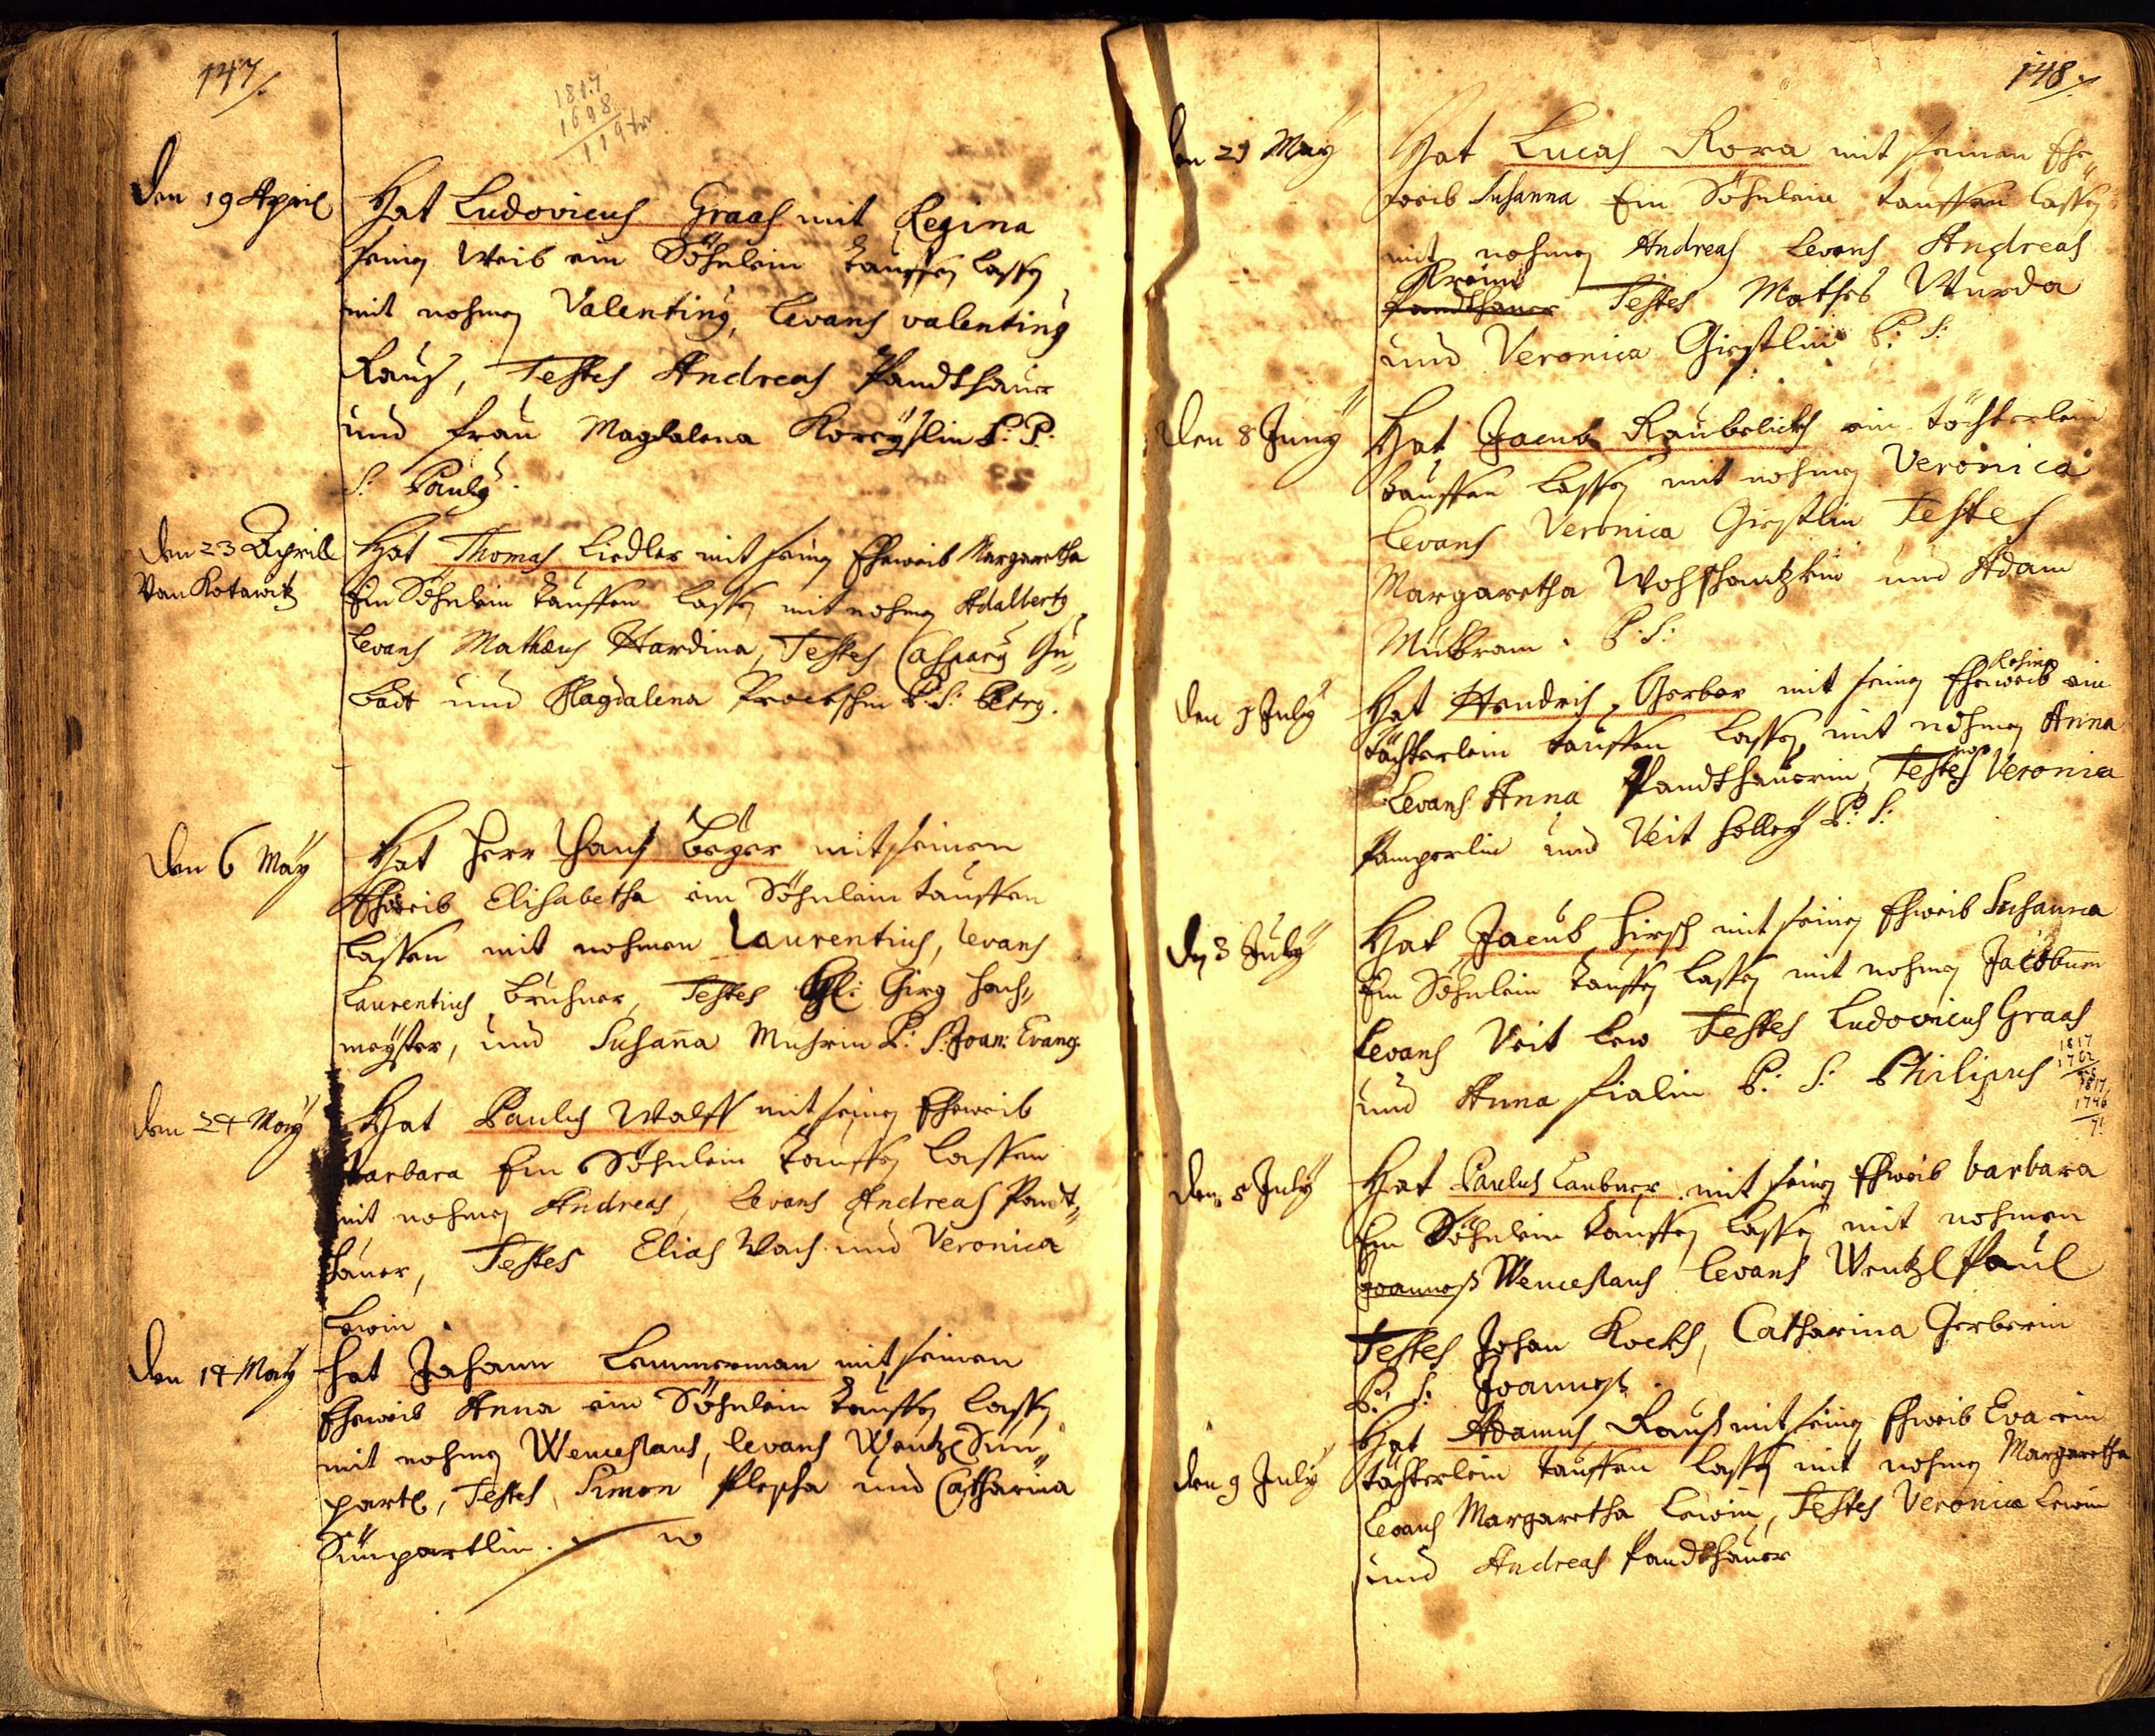 147
1817
1698
119
den 19 April
Hat Ludovicus Graas mit Regina
seinen Weib ein Söhnlein tauffen lassen
mit nahmen Valentinus, Levans valentinus
Raus, Testes Andreas Pandthauer
und frau Magdalena P: P.
S: Pauly
den 23 Aprill
Von Kotawitz
Hat Thomas Liedler mit seinen Eheweib Margaretha
Ein Söhnlein tauffen lassen mit nahmen Adalbertus
Levans Mathæus Hardina, Testes Caspary Gu„
und Magdalena P: S: Petry.
den 6 May
Hat Herr Hans Beÿer mit seinen
Eheweib Elisabetha ein Söhnlein tauffen
lassen mit nahmen Laurentius, levans
Laurentius Bruhner, Testes Girg Hech„
meyster, und Susanna Muhrin P: S: Joan: Evang.
den 24 May
Hat Paulus Walff mit seinen Eheweib
barbara Ein Söhnlein tauffen lassen
mit nahmen Andreas, Levans Andreas Pandt„
hauer, Testes Elias Wach und Veronica
Lewin
den 14 May
hat Johann Lemmerman mit seinen
Eheweib Anna ein Söhnlein tauffen lassen
mit nahmen Wenceslaus, levans Wentzl Sim„
partl, Testes Simon Plescha und Catharina
Simpartlin.
148
den 29 May
Hat Lucas Rora mit seinen Ehe„
weib Susanna Ein Söhnlein tauffen lassen
mit nahmen Andreas Levans Andreas
Pandthauer Testes Mathes Wurda
und Veronica Girstlin P: S:
den 8 Juny
Hat Jacub Raubelickh ein töchterlein
tauffen lassen mit nahmen Veronica
Levans Veronica Girstlin Testes
Margaretha und Adam
P: S:
den July
Rosina
Hat Hendrich Gerber mit seinen Eheweib ein
töchterlein tauffen lassen mit nahmen Anna
Levans Anna Pandthauerin, Testes Veronica
Pamperlin und Veit P: S:
den 3 July
Hat Jacub Hirsch mit seinen Eheweib Susanna
Ein Söhnlein tauffen lassen mit nahmen Jacobum
Levans Veit Lew Testes Ludovicus Graas
und Anna fialin P: S: Philipus
1817
1762
1817
1746
71
den 8 July
Hat Paulus Laubner mit seinen Eheweib barbara
Ein Söhnlein tauffen lassen mit nahmen
Joannes Wenceslaus levans Wentzl Paul
Testes Johan Kockh, Catharina Gerberin
P: S: Joannes
den 9 July
Hat Adamus Raus mit seinen Eheweib Eva ein
töchterlein tauffen lassen mit nahmen Margaretha
levans Margaretha Lewin, Testes Veronica Lewin
und Andreas Pandthauer